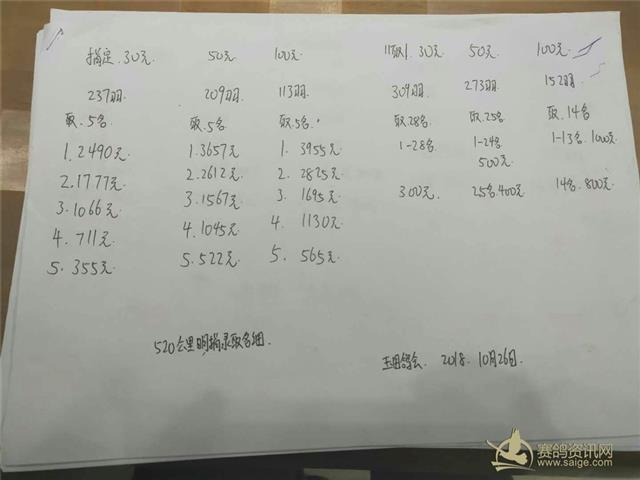 指定.30元. 50元 100元 11取1.30元. 50元 100元
237羽. 209羽 113羽. 309羽. 273羽. 152羽.
取.5名. 取.5名 取.5名. 取.28名. 取.25名 取.14名
1.2490元. 1.3657元 1.3955元 1-28名. 1-24名 1-13名.1000元
500元
2.1777元. 2.2612元 2.2825元 300元. 25名.400元 14名.800元
3.1066元. 3.1567元 3.1695元
4.711元. 4.1045元 4.1130元
5.355元. 5.522元. 5.565元.
520公里 录取名细.
玉田鸽会. 2018.10月26日.
赛鸽资讯网
www.saige.com